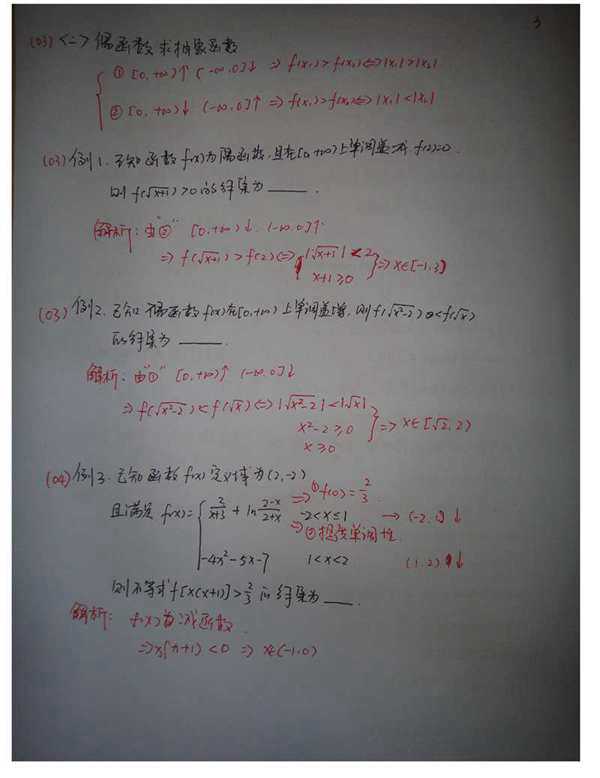 3
(03) <二> 偶函数求抽象函数
① [0,+∞)↑ (-∞,0]↓ ⇒ f(x₁)>f(x₂)⇔|x₁|>|x₂|
② [0,+∞)↓ (-∞,0]↑ ⇒ f(x₁)>f(x₂)⇔|x₁|<|x₂|
(03) 例1. 已知函数f(x)为偶函数,且在[0,+∞)上单调递减, f(2)=0.
则 f(√(x+1))>0的解集为 ____.
解析: 由"②" [0,+∞)↓. (-∞,0]↑
⇒ f(√(x+1))>f(2)⇔ { |√(x+1)|<2
x+1≥0 } ⇒ x∈[-1,3)
(03) 例2. 已知偶函数f(x)在[0,+∞)上单调递增, 则f(√(x²-2))<f(√x)
的解集为 ____.
解析: 由"①" [0,+∞)↑ (-∞,0]↓
⇒ f(√(x²-2))<f(√x)⇔|√(x²-2)|<|√x|
x²-2≥0
x≥0 } ⇒ x∈[√2,2)
(04) 例3. 已知函数f(x)定义域为(2,-2)
且满足 f(x)= { 2/(x+3) + ln (2-x)/(2+x) -2<x≤1 → (-2,1]↓
⇒ ① f(0)=2/3.
⇒ ② 单调性
-4x²-5x-7 1<x<2 (1,2)↓
则不等式f[x(x+1)]>2/3 的解集为 ___.
解析: f(x)为减函数.
⇒x(x+1)<0 ⇒ x∈(-1,0)